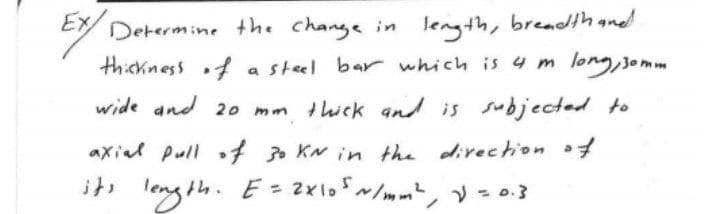 Ex/ Determine the change in length, breadth and
thickness of a steel bar which is 4 m long, 30 mm
wide and 20 mm thick and is subjected to
axial pull of 30 KN in the direction of
its length. E = 2x10⁵ N/mm², ν = 0.3